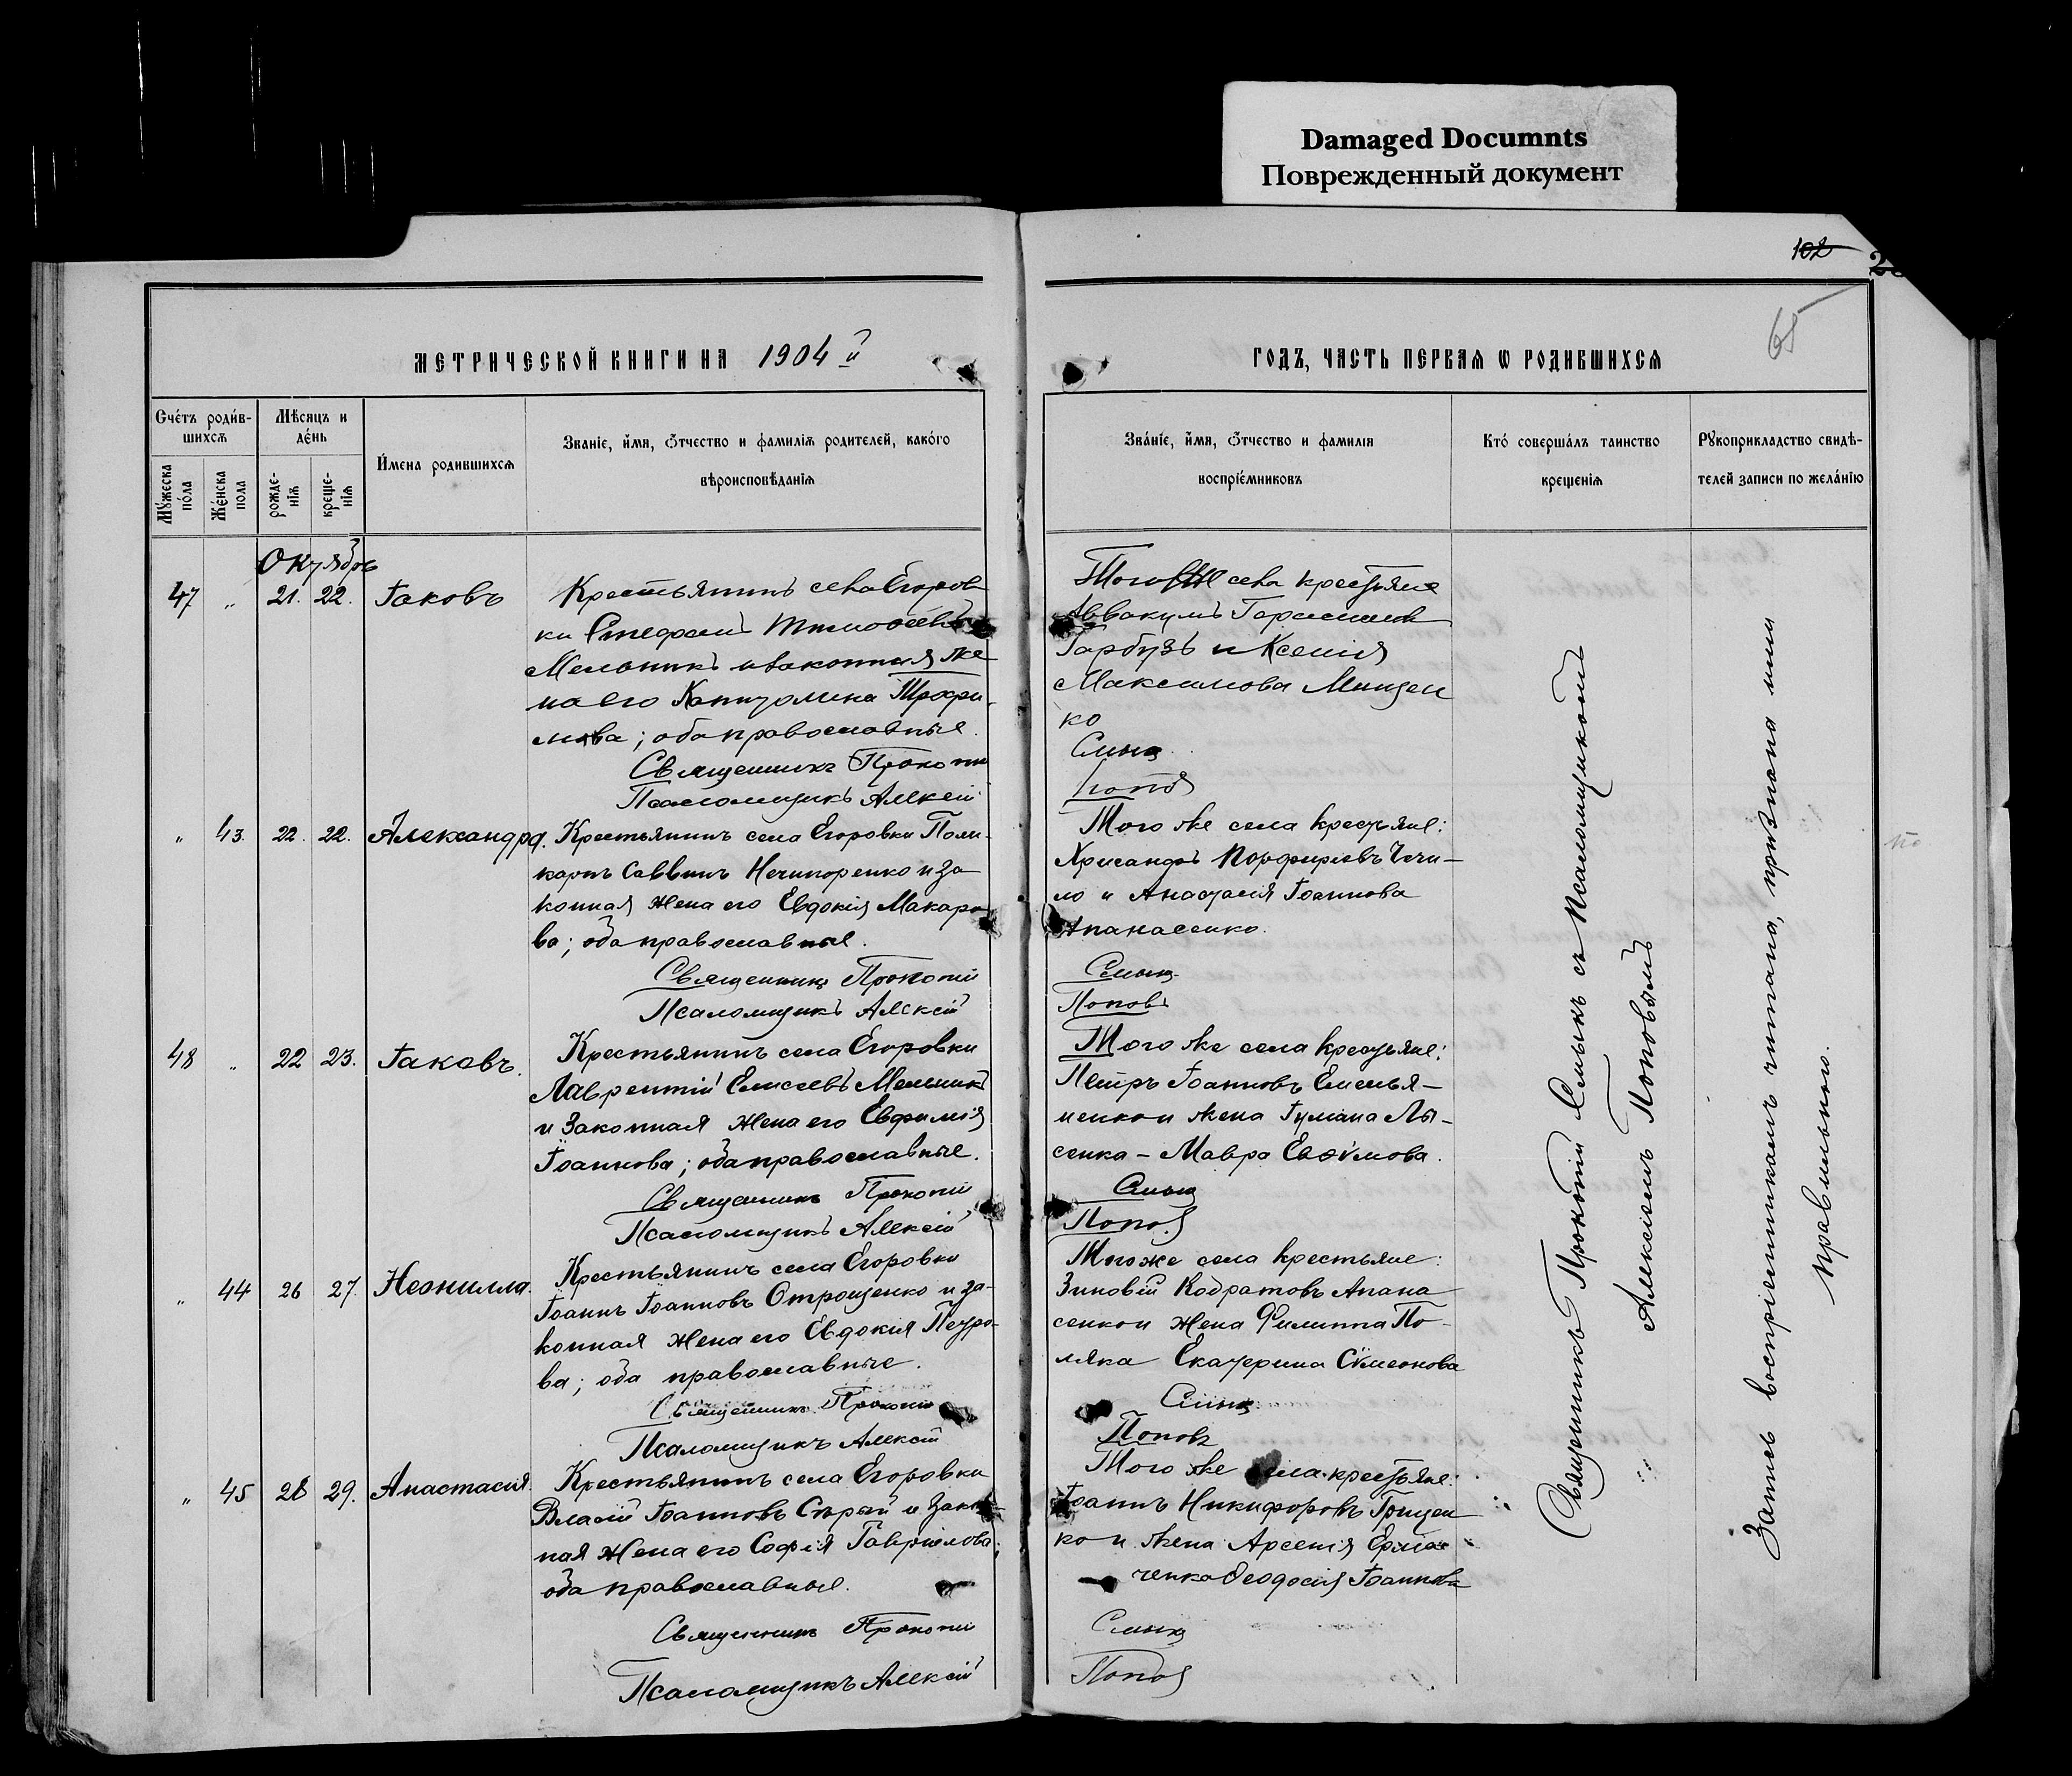 Damaged Documnts
Поврежденный документ
102
65
МЕТРИЧЕСКОЙ КНИГИ НА 1904 й
ГОДЪ, ЧАСТЬ ПЕРВАЯ Ѡ РОДИВШИХСЯ
Счетъ родив-
шихся
Мужеска
пола
Женска
пола
Мѣсяцъ и
день
рожде-
нія
креще-
нія
Имена родившихся
Званіе, имя, отчество и фамилія родителей, какого
вѣроисповѣданія
Званіе, имя, отчество и фамилія
воспріемниковъ
Кто совершалъ таинство
крещенія
Рукоприкладство свидѣ-
телей записи по желанію
Октябрь
47 „ 21. 22. Іаковъ
Крестьянинъ села Егоров
ки Стефанъ Тимоѳеевъ
Мельникъ и законная же
на его Капитолина Трофи-
мова; оба православные.
Священникъ Прокопій
Псаломщикъ Алексій
Того же села крестьяне
Аввакумъ Герасимов
Гарбузъ и Ксенія
Максимова Мищен
ко
Смык
Попов
„ 43. 22. 22. Александра.
Крестьянинъ села Егоровки Поли-
карпъ Саввинъ Нечипоренко и за
конная жена его Евдокія Макаро
ва; оба православные.
Священникъ Прокопій
Псаломщикъ Алексій
Того же села крестьяне:
Хрисанфъ Порфирьевъ Чечи-
ло и Анастасія Іоаннова
Апанасенко.
Смык
Поповъ
48 „ 22 23. Іаковъ.
Крестьянинъ села Егоровки
Лаврентій Елисеевъ Мельникъ
и законная жена его Евфимія
Іоаннова; оба православные.
Священникъ Прокопій
Псаломщикъ Алексій
Того же села крестьяне:
Петръ Іоанновъ Емелья-
ненко и жена Гумана Лы-
сенка - Мавра Евѳимова.
Смык
Попов
„ 44 26 27. Неонилла.
Крестьянинъ села Егоровки
Іоаннъ Іоанновъ Отрощенко и за-
конная жена его Евдокія Петро-
ва; оба православные.
Священникъ Прокопій
Псаломщикъ Алексій
Того же села крестьяне:
Зиновій Кодратовъ Апана
сенко и жена Филиппа По-
ляка Екатерина Сѵмеонова
Смык
Поповъ
„ 45 28 29. Анастасія.
Крестьянинъ села Егоровки
Власій Іоанновъ Сѣрый и закон
ная жена его Софія Гавріилова;
оба православные.
Священникъ Прокопій
Псаломщикъ Алексій
Того же села крестьяне:
Іоаннъ Никифоровъ Грицен
ко и жена Арсенія Ерма
ченка Ѳеодосія Іоаннова
Смык
Попов
Священникъ Прокопій Смыкъ съ Псаломщикомъ
Алексіемъ Поповымъ
Запись воспріемникамъ читана, признана ими
правильною.